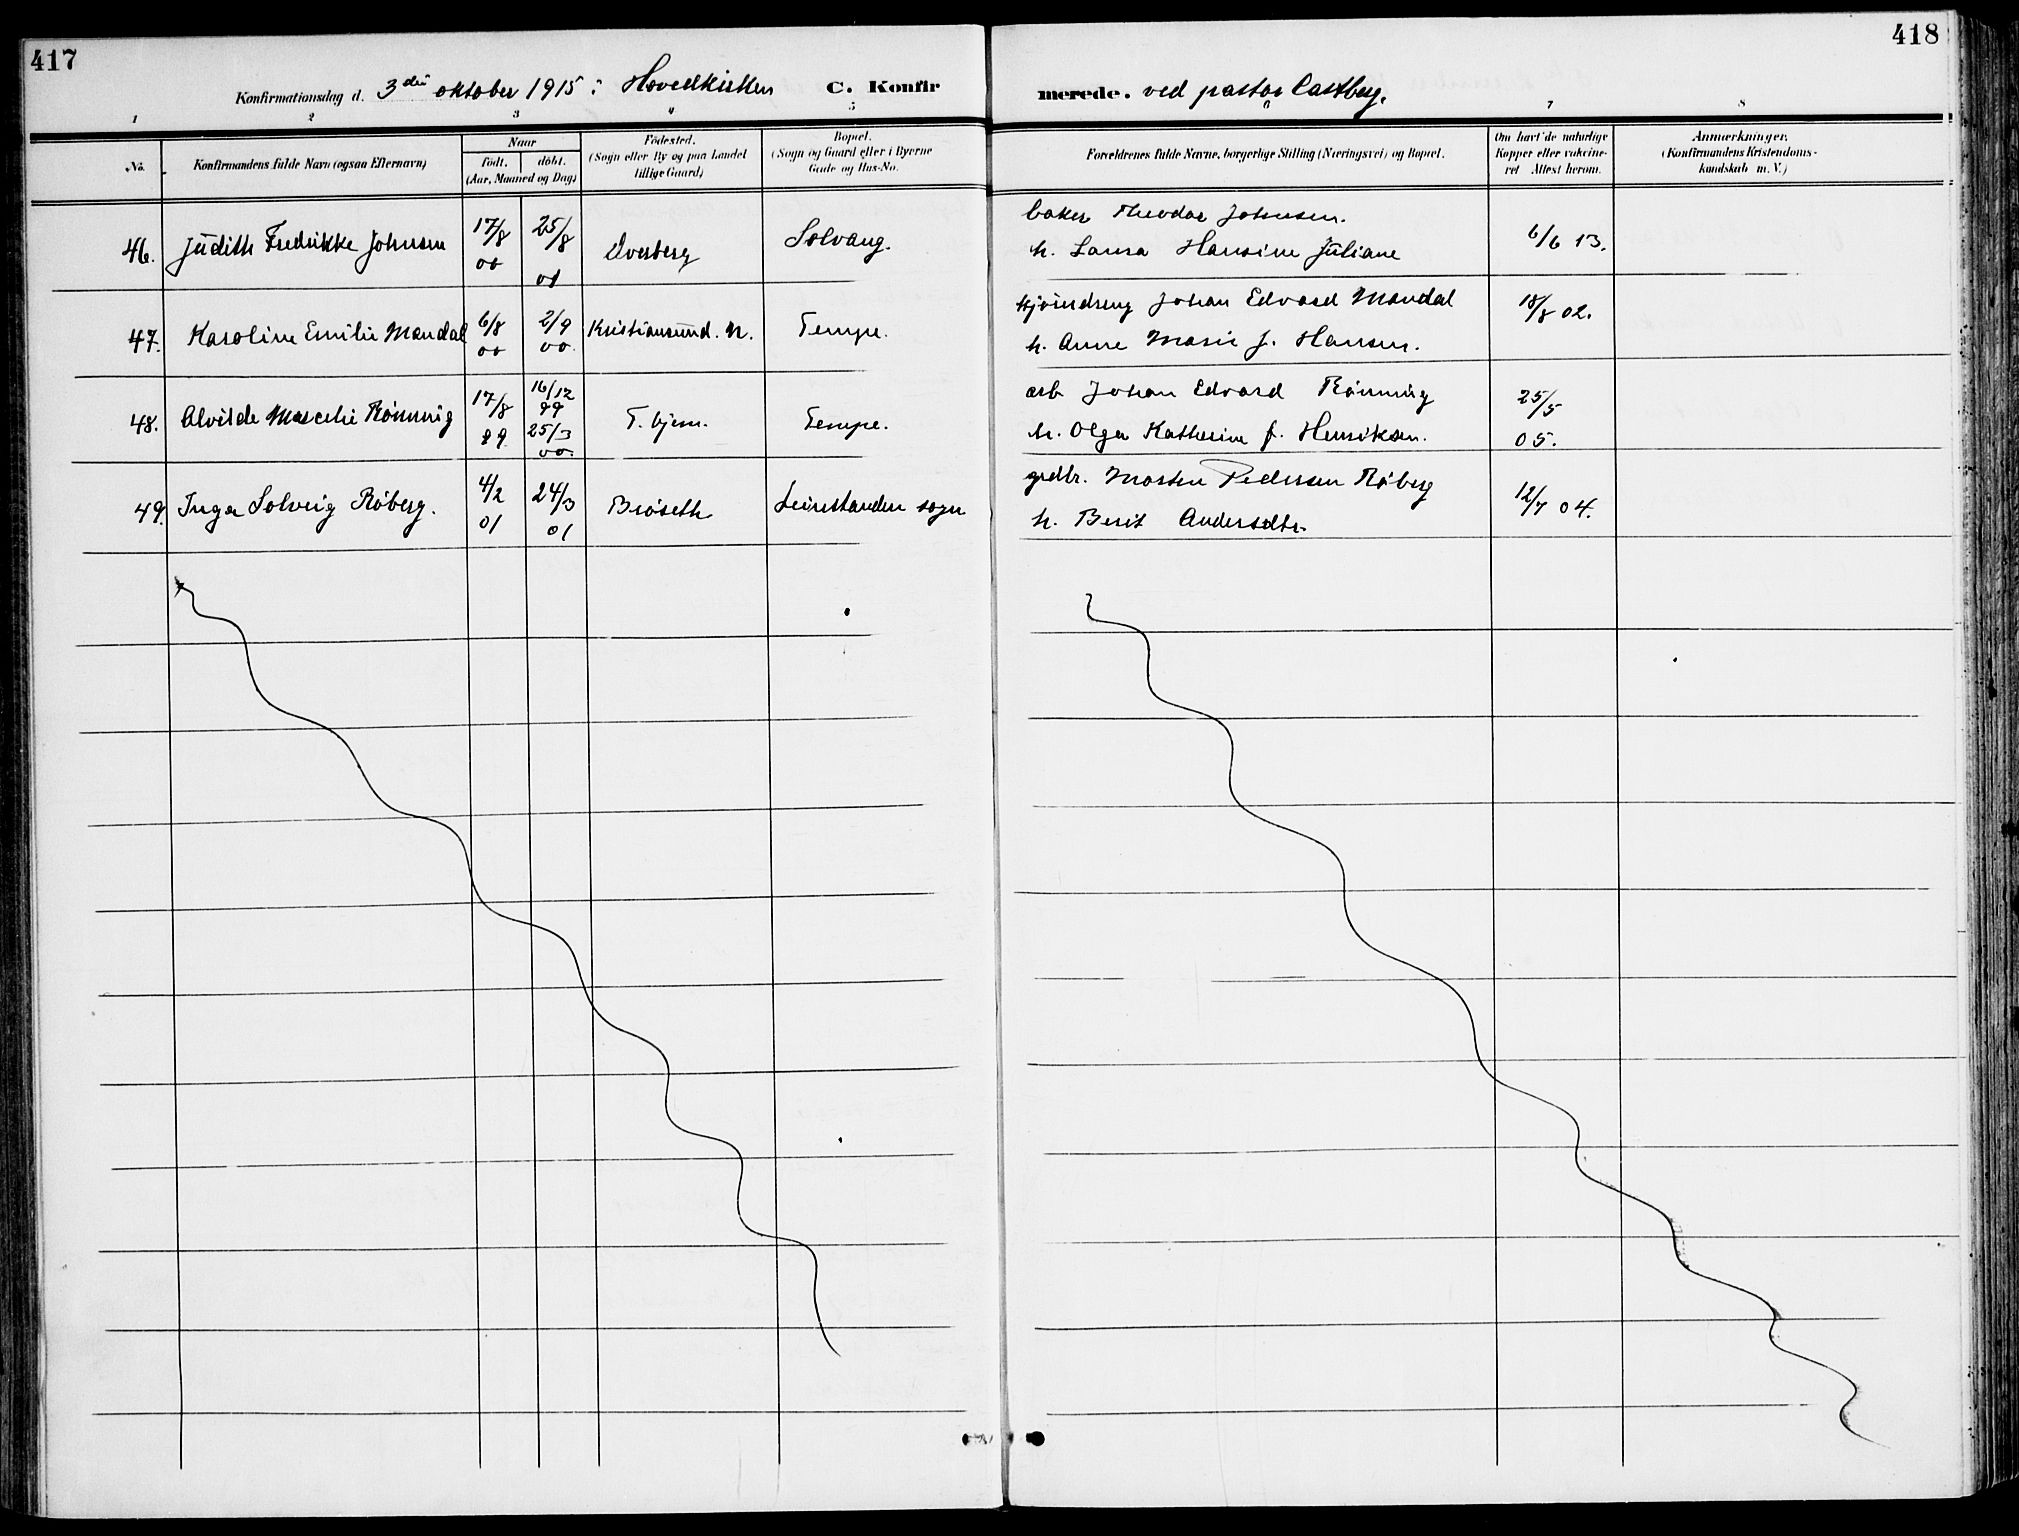 417
418
Konfirmationsdag d. 3die oktober 1915 i Hovedkirken C. Konfir
merede. ved pastor Castberg.
1 2 3 4 5 6 7 8
No.
Konfirmandens fulde Navn (ogsaa Efternavn)
Naar
födt. döbt.
(Aar, Maaned og Dag)
Födested.
(Sogn eller By og paa Landet
tillige Gaard)
Bopæl.
(Sogn og Gaard eller i Byerne
Gade og Hus-No.
Forældrenes fulde Navne, borgerlige Stilling (Næringsvei) og Bopæl.
Om havt de naturlige
Kopper eller vakcine-
ret Attest herom.
Anmærkninger.
(Konfirmandens Kristendoms-
kundskab m. V.)
46. Judith Fredrikke Johnsen 17/8 00 25/8 01 Overberg Solvang.
baker Theodor Johnsen.
h. Laura Hansine Juliane
6/6 13.
47. Karoline Emilie Mandal 6/8 00 2/9 00. Kristiansund. N. Tempe.
Johan Edvard Mandal
h. Anne Marie f. Hansen.
18/8 02.
48. Alvilde Marcelie Rönning 17/8 99 16/12 99 25/3 00. T. hjem. Tempe.
arb Johan Edvard Rönning
h. Olga Katherine f. Henriksen.
25/5 05.
49. Inga Solveig Röberg. 4/2 01 24/3 01 Bröseth Leinstranden sogn
grdbr. Morten Pedersen Röberg
h. Berit Andersdtr.
12/7 04.